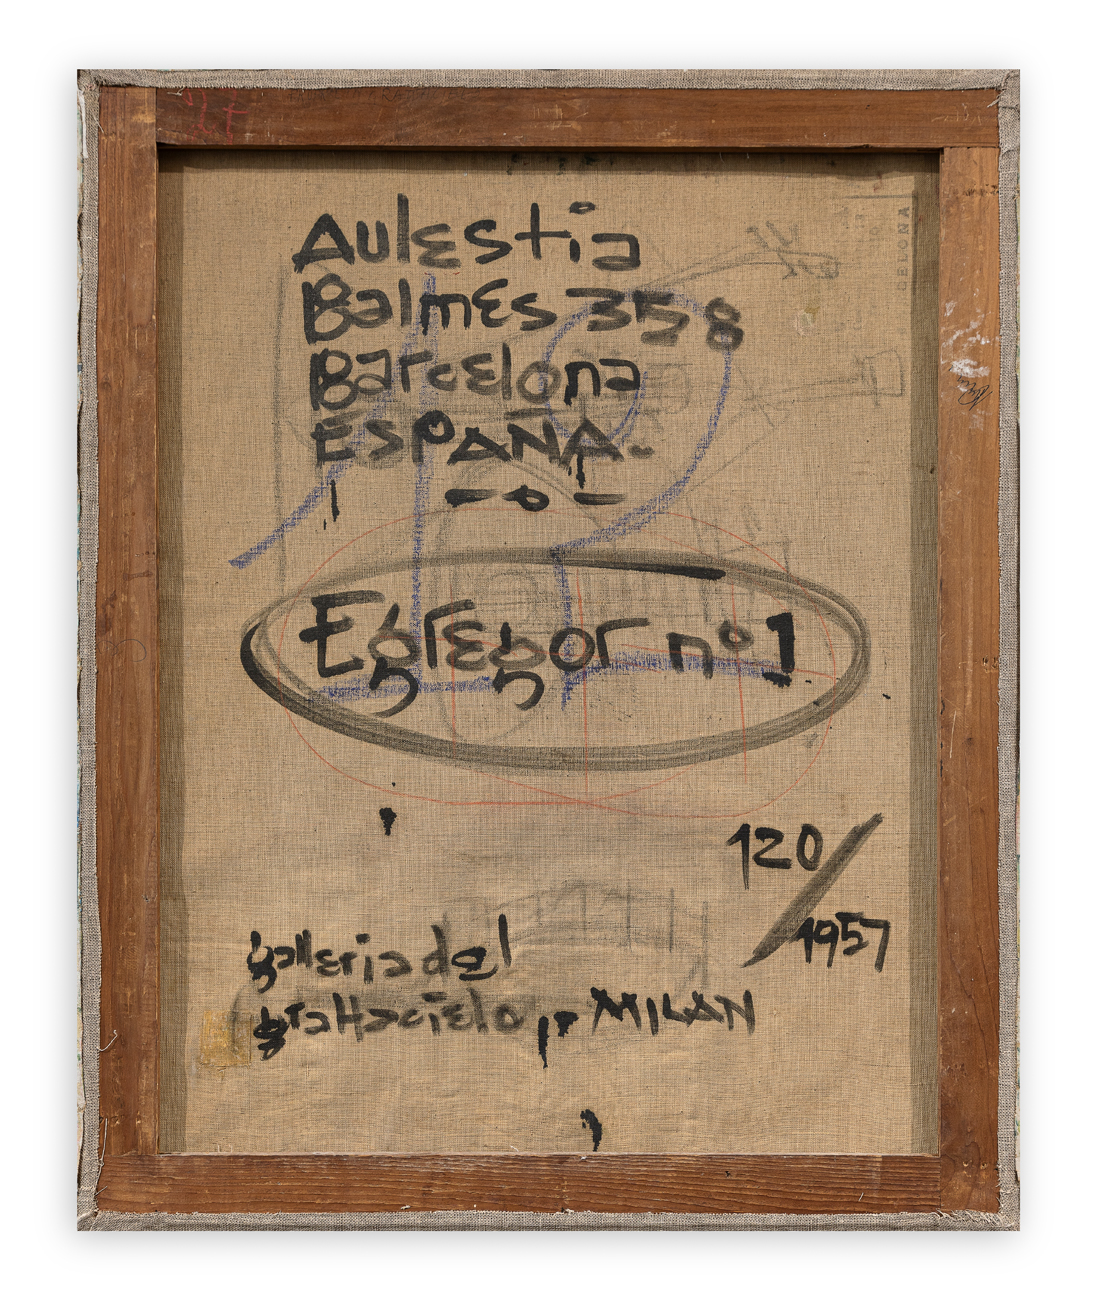 27
AulEstia
Balmes 358
Barcelona
ESPAÑA.
-o-
Egregor nº1
120/1957
galleria del
grattacielo MILAN